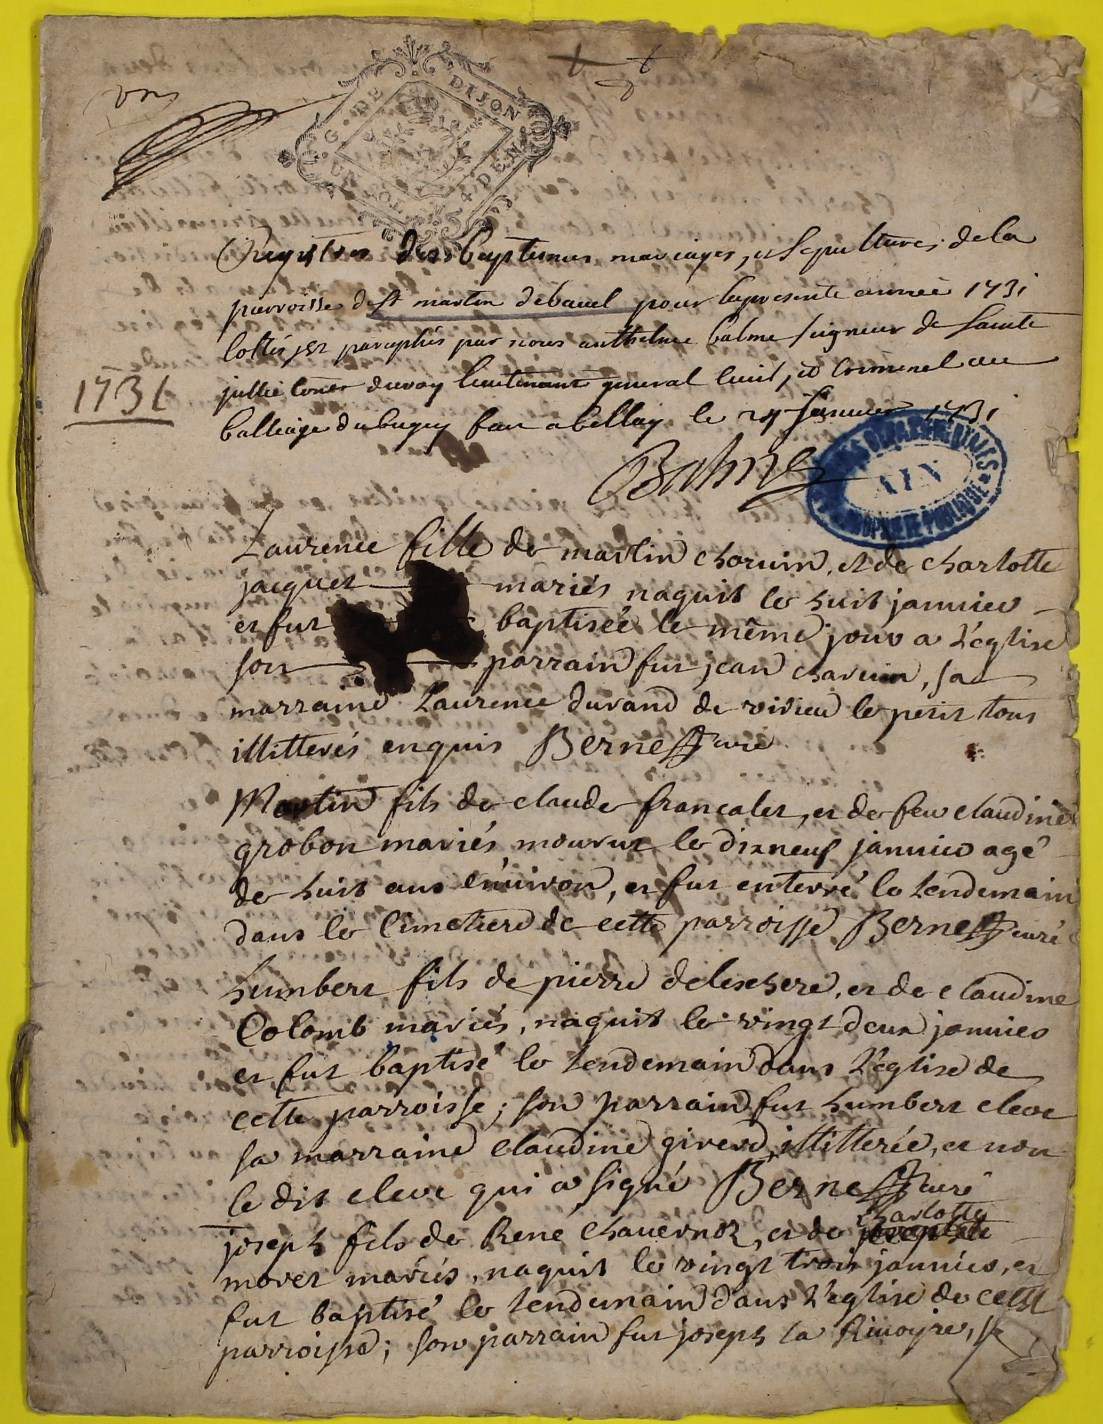 G. DE DIJON
UN SOL 4 DEN
Registres des baptemes mariages, et sepultures de la
parroisse de st martin debavel pour la presente année 1731
Cottés et paraphés par nous anthelme balme seigneur de sainte
jullie Coner du roy lieutenant general Civil, et Criminel au
1731
balliage du bugey fait a bellay le janvier 1731
Balme
ARCHIVES DEPARTEMENTALES
AIN
PROPRIETE PUBLIQUE
Laurence fille de martin charvin, et de charlotte
jacquet mariés naquit le huit janvier
et fut baptisée le même jour a l'eglise
son parrain fut jean charvin, sa
marraine Laurence durand de virieu le petit tous
illitterés enquis Berne curé
Martin fils de claude francalet, et de feu claudine
grobon mariés mourut le dixneuf janvier agé
de huit ans environ, et fut enterré le lendemain
dans le Cimetiere de cette parroisse Berne curé
humbert fils de pierre delexhere, et de claudine
Colomb mariés, naquit le vingt deux janvier
et fut baptisé le lendemain dans l'eglise de
cette parroisse; son parrain fut humbert eleve
sa marraine claudine girerd illitterée, et non
le dit eleve qui a signé Berne curé
charlotte
joseph fils de René chavernoz, et de
moret mariés, naquit le vingt trois janvier, et
fut baptisé le lendemain dans l'eglise de cette
parroisse; son parrain fut joseph la Rivoyre, sa